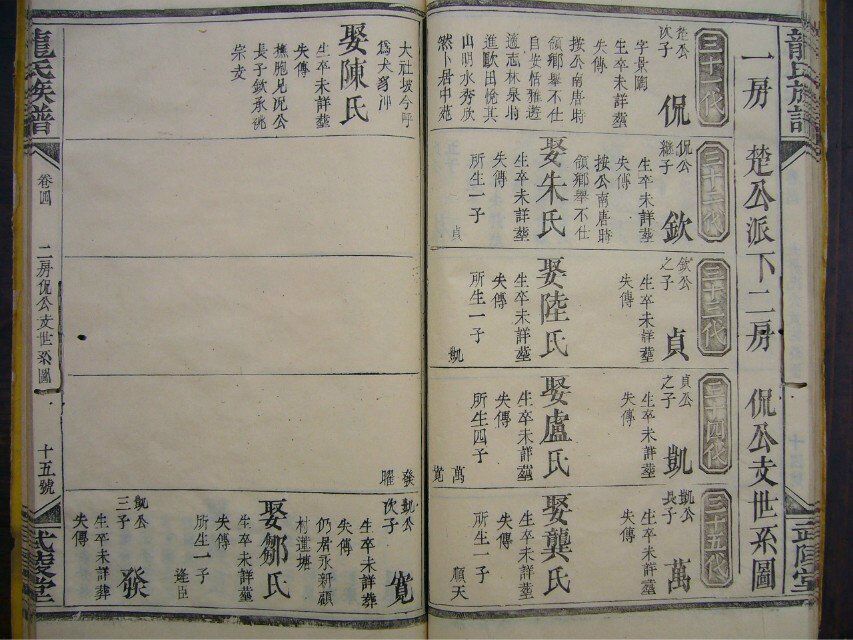 龍氏族譜
武陵堂
一房 楚公派下二房 侃公支世系圖
三十一代
楚公
次子
侃
字景陶
生卒未詳塟
失傳
按公南唐時
領鄉舉不仕
自安恬雅遊
適志林泉時
進歐田悅其
山明水秀欣
然卜居中苑
大社坡今呼
爲犬豸冲
娶陳氏
生卒未詳塟
失傳
撫胞兄況公
長子欽承祧
宗支
三十二代
侃公
繼子
欽
生卒未詳塟
失傳
按公南唐時
領鄉舉不仕
娶朱氏
生卒未詳塟
失傳
所生一子
貞
三十三代
欽公
之子
貞
生卒未詳塟
失傳
娶陸氏
生卒未詳塟
失傳
所生一子
凱
三十四代
貞公
之子
凱
生卒未詳塟
失傳
娶盧氏
生卒未詳塟
失傳
所生四子
萬
寬
發
曜
三十五代
凱公
長子
萬
生卒未詳塟
失傳
娶龔氏
生卒未詳塟
失傳
所生一子
順天
凱公
次子
寬
生卒未詳葬
失傳
仍居永新顧
村蓮塘
娶鄒氏
生卒未詳塟
失傳
所生一子
逢臣
凱公
三子
發
生卒未詳葬
失傳
龍氏族譜
卷四
二房侃公支世系圖
十五號
武陵堂